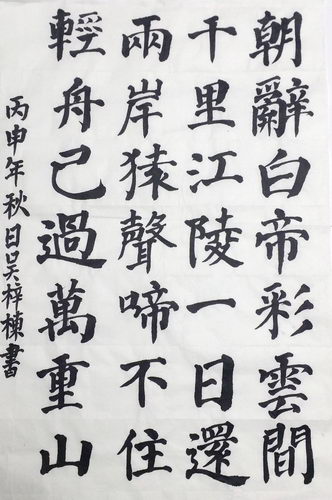 朝辭白帝彩雲間
千里江陵一日還
兩岸猿聲啼不住
輕舟已過萬重山
丙申年秋日吳梓棟書